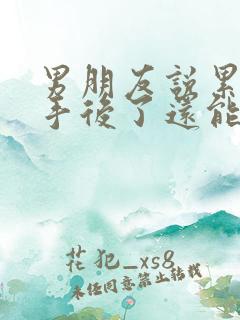 男朋友説累
手後了還能
花犯_xs8
未经同意禁止转载